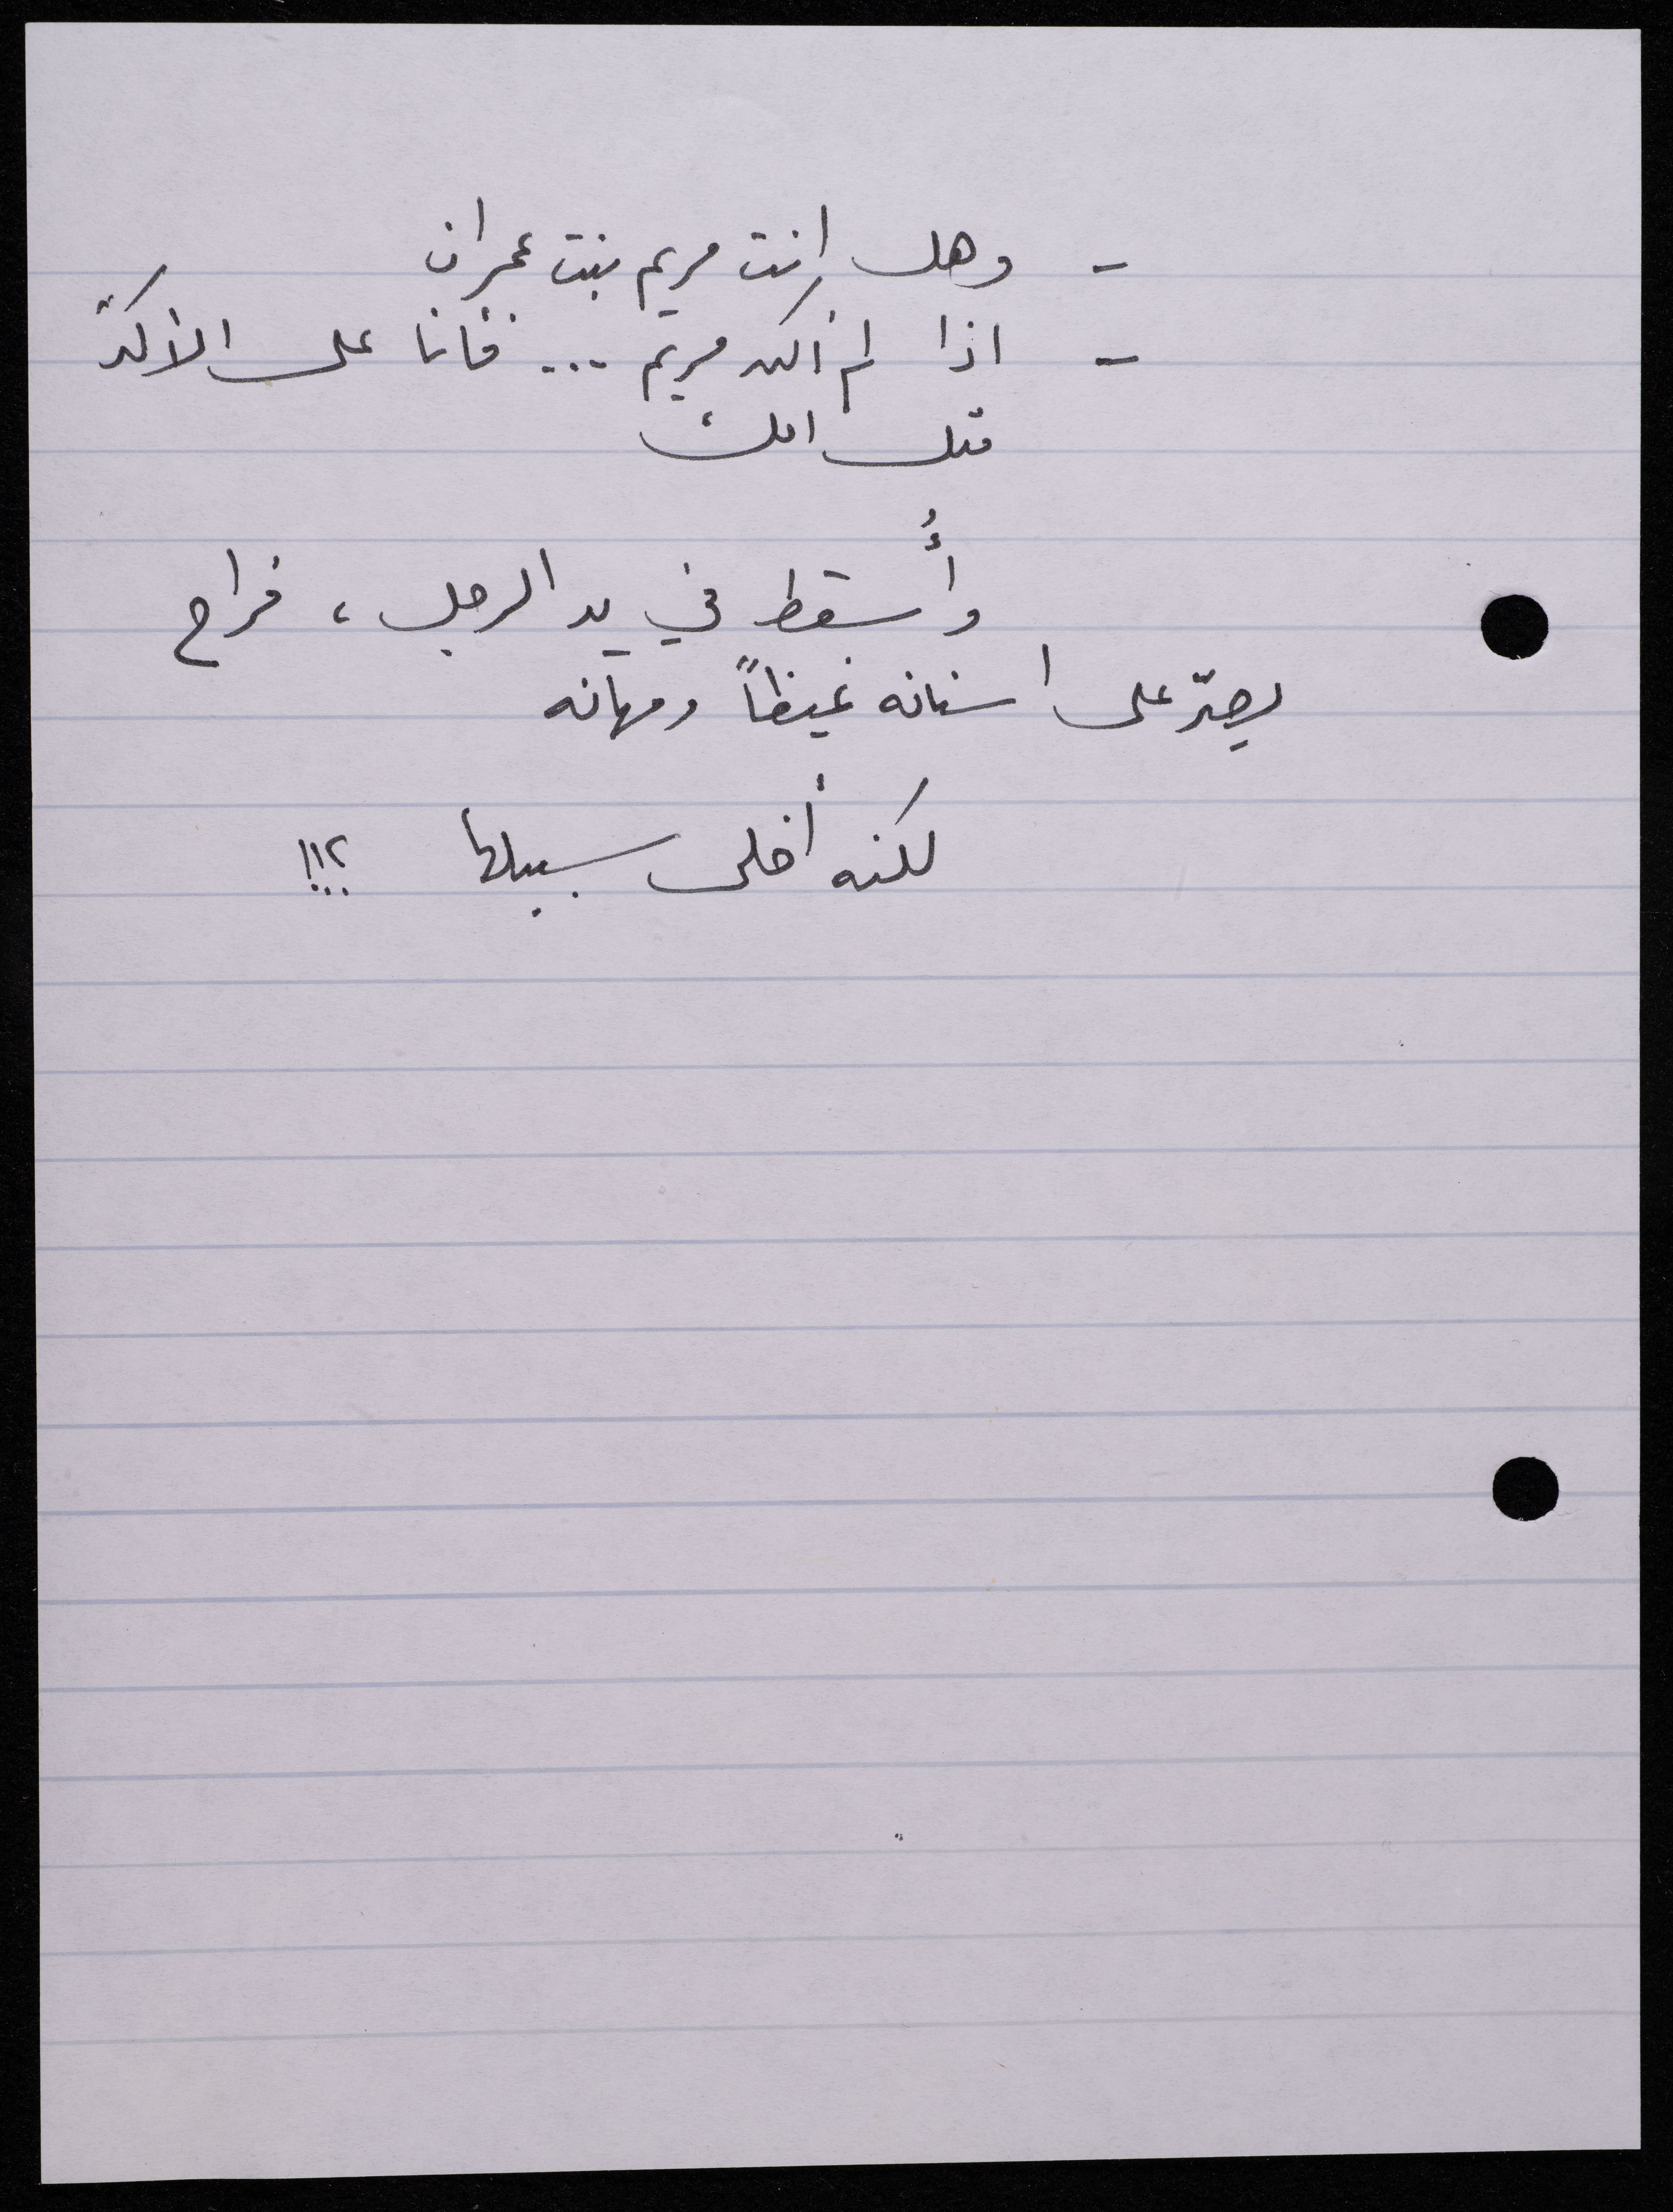 - وهل انت مريم بنت عمران
- اذا لم أكن مريم ... فأنا على الأكد
مثل امك
وأُسقط في يد الرجل ، فراح
يصرّ على اسنانه غيظاً ومهانه
لكنه أخلى سبيلها ؟!!